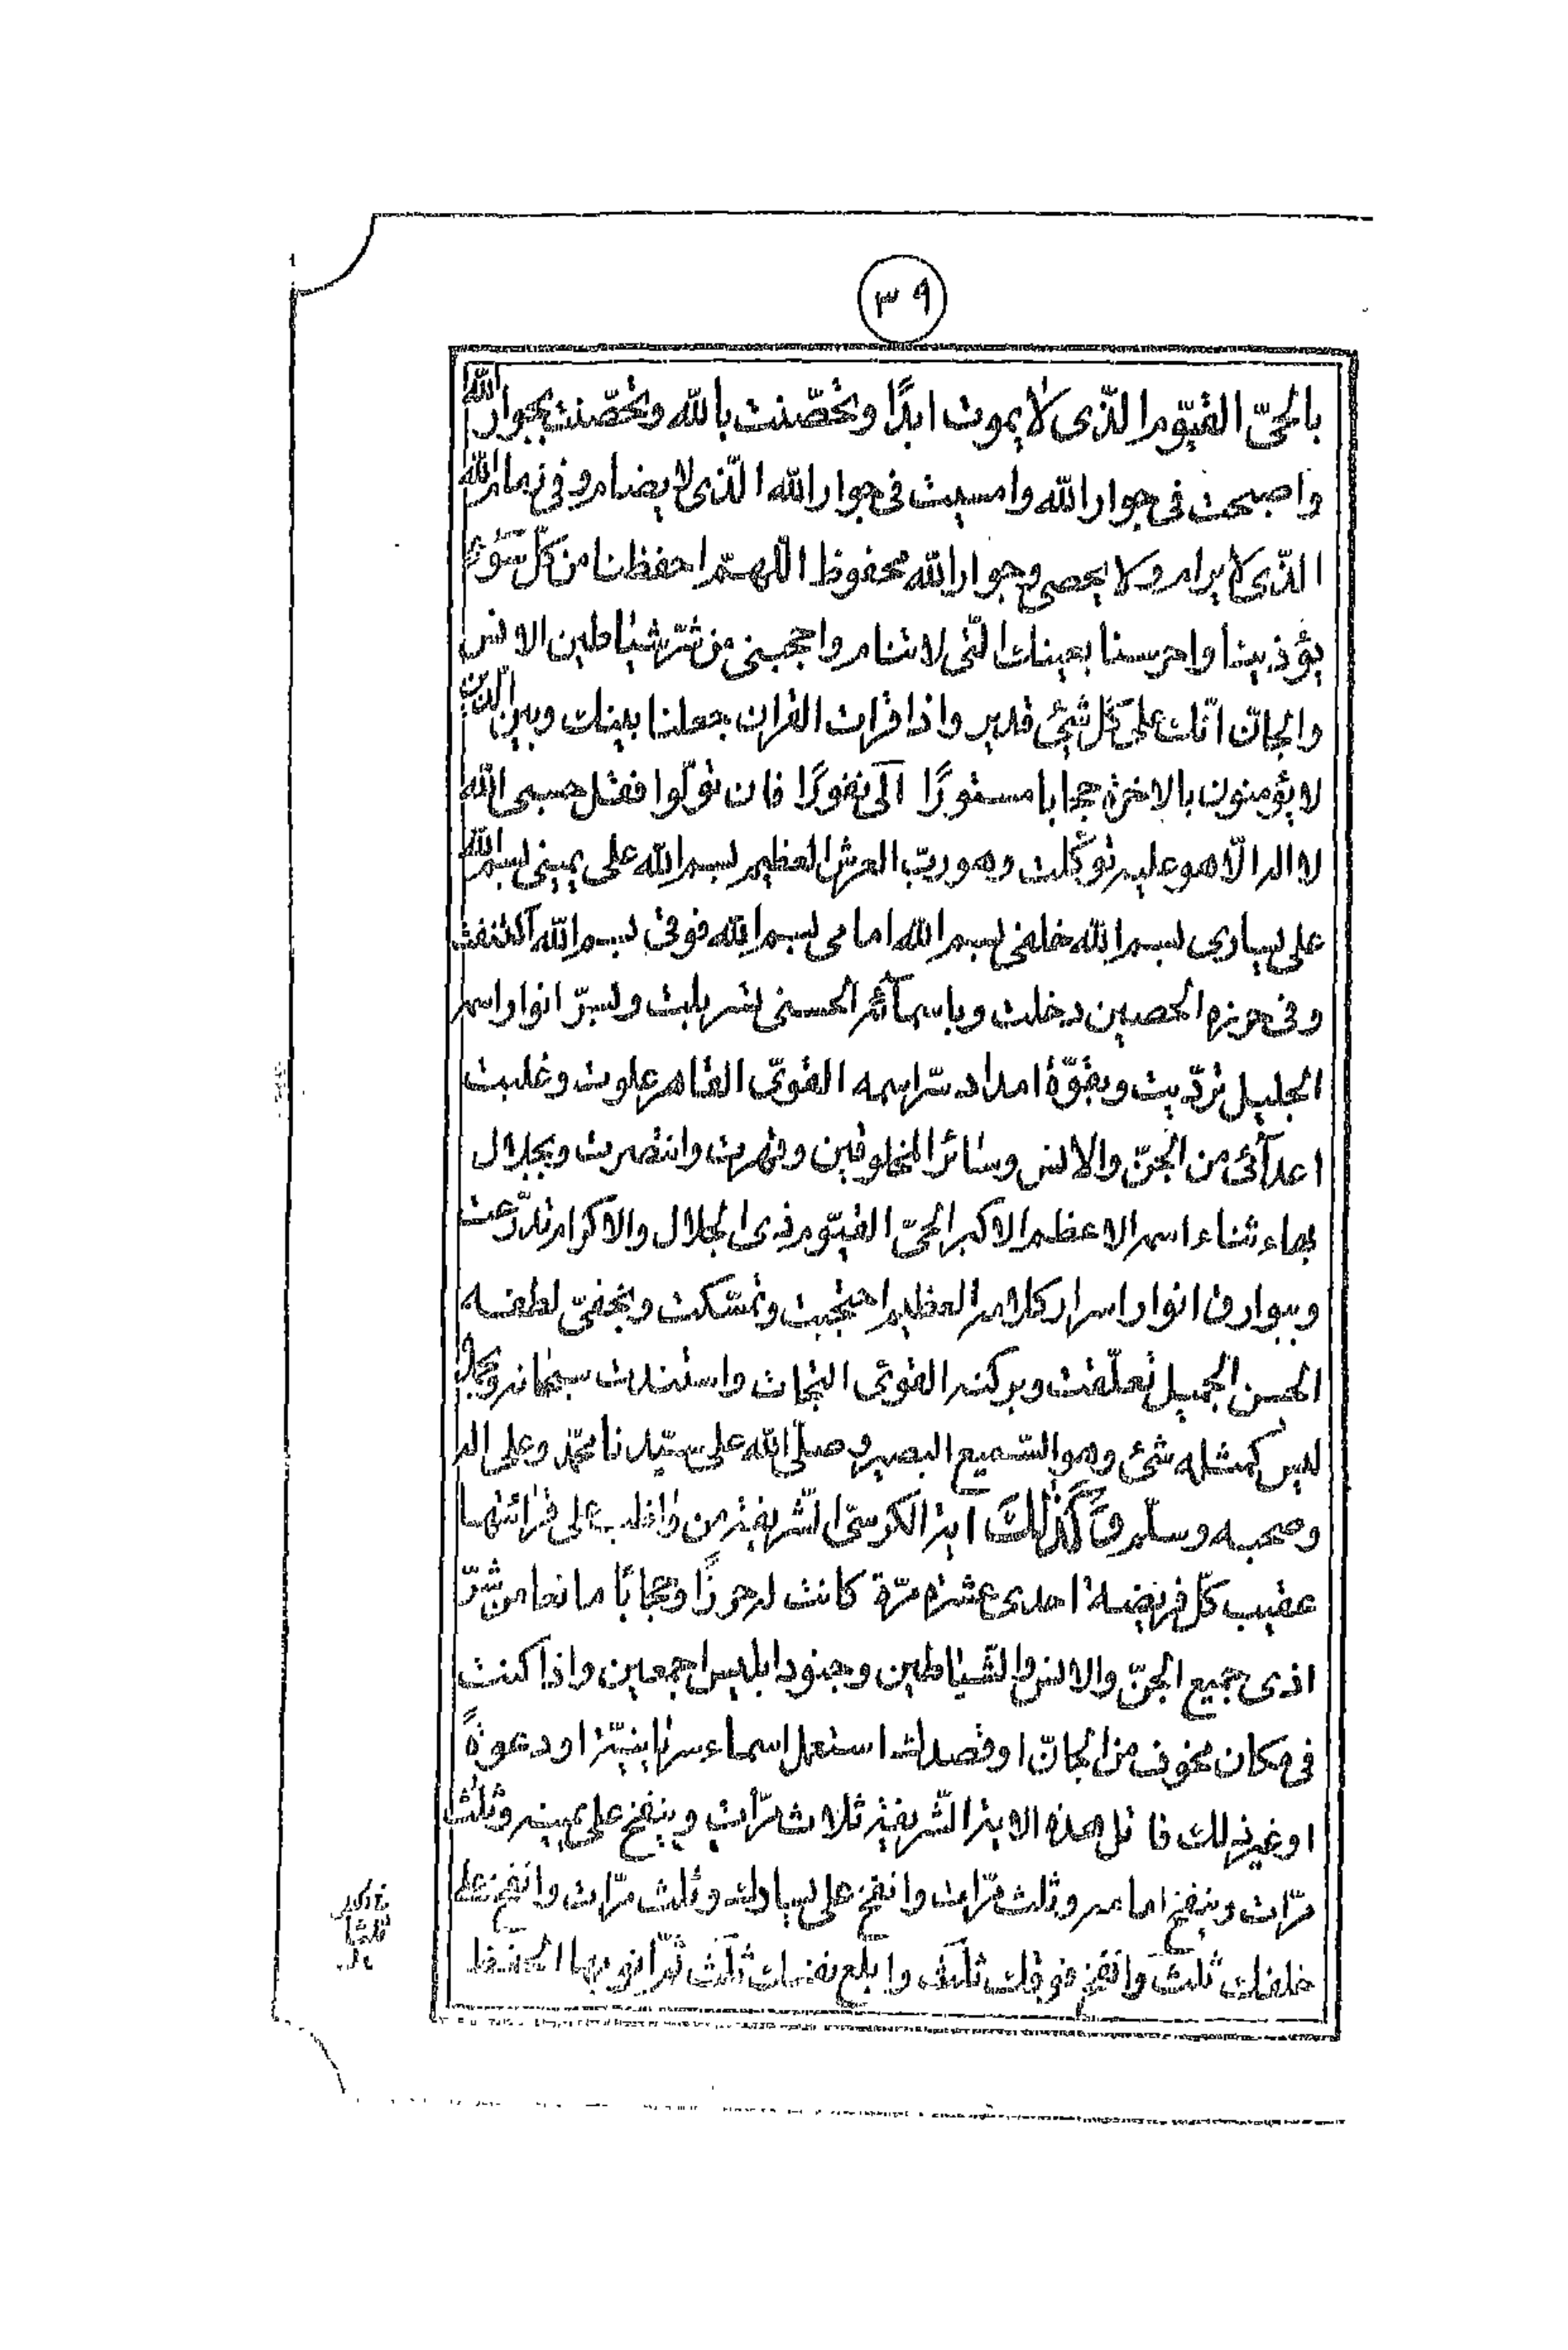 ٣٩
بالحىّ القيّوم الذّى لا يموت ابدًا وتحصّنت بالله وتحصّنت بجوار الله
واصبحت فى جوار الله وامسيت فى جوار الله الّذى لا يضام وفى ذمام الله
الذّى لا يرام ولا يحصى وجوار الله محفوظ اللهمّ احفظنا من كلّ سوء
يؤذينا واحرسنا بعينك الّتى لا تنام واحجبنى من شرّ شياطين الانس
والجانّ انّك على كلّ شئ قدير واذا قرات القران جعلنا بينك وبين الذين
لا يؤمنون بالاخرة حجابا مستورًا الى نفورًا فان تولّوا فقل حسبى الله
لا اله الّا هو عليه توكّلت وهو ربّ العرش العظيم بسم الله على يمينى بسم الله
على يسارى بسم الله خلفى بسم الله امامى بسم الله فوقى بسم الله اكتنفت
وفى حرزه الحصين دخلت وباسمآئه الحسنى تسربلت وبسرّ انوار اسمه
الجليل تردّيت وبقوّة امداد سرّ اسمه القوىّ القاهر علوت وغلبت
اعدآئى من الجنّ والانس وسائر المخلوقين وقهرت وانتصرت وبجلال
بهاء ثناء اسمه الاعظم الاكبر الحىّ القيّوم ذى الجلال والاكرام تدرّعت
وببوارق انوار اسرار كلامه العظيم احتجبت وتمسّكت وبخفىّ لطفه
الحسن الجميل تعلّقت وبركنه القوىّ التجات واستندت سبحانه وبجلال
ليس كمثله شئ وهو السّميع البصير وصلّى الله على سيّدنا محمّد وعلى اله
وصحبه وسلّم وَكَذٰلِكَ اية الكرسىّ الشّريفة من واظب على قرائتها
عقيب كلّ فريضة احدى عشرة مرّة كانت له حرزًا وحجابًا مانعا من شرّ
اذى جميع الجنّ والانس والشّياطين وجنود ابليس اجمعين واذا كنت
فى مكان مخوف من الجانّ او قصدك استعمل اسماء سريانيّة او دعوةً
او غير ذلك فاتل هذه الاية الشّريفة ثلاث مرّات وينفخ على يمينه وثلث
مرّات وينفخ امامه وثلث مرّات وانفخ على يسارك وثلث مرّات وانفخ على
خلفك ثلث وانفخ فوقك ثلث وابلع نفسك ثلث ثمّ انو بها الحفظ